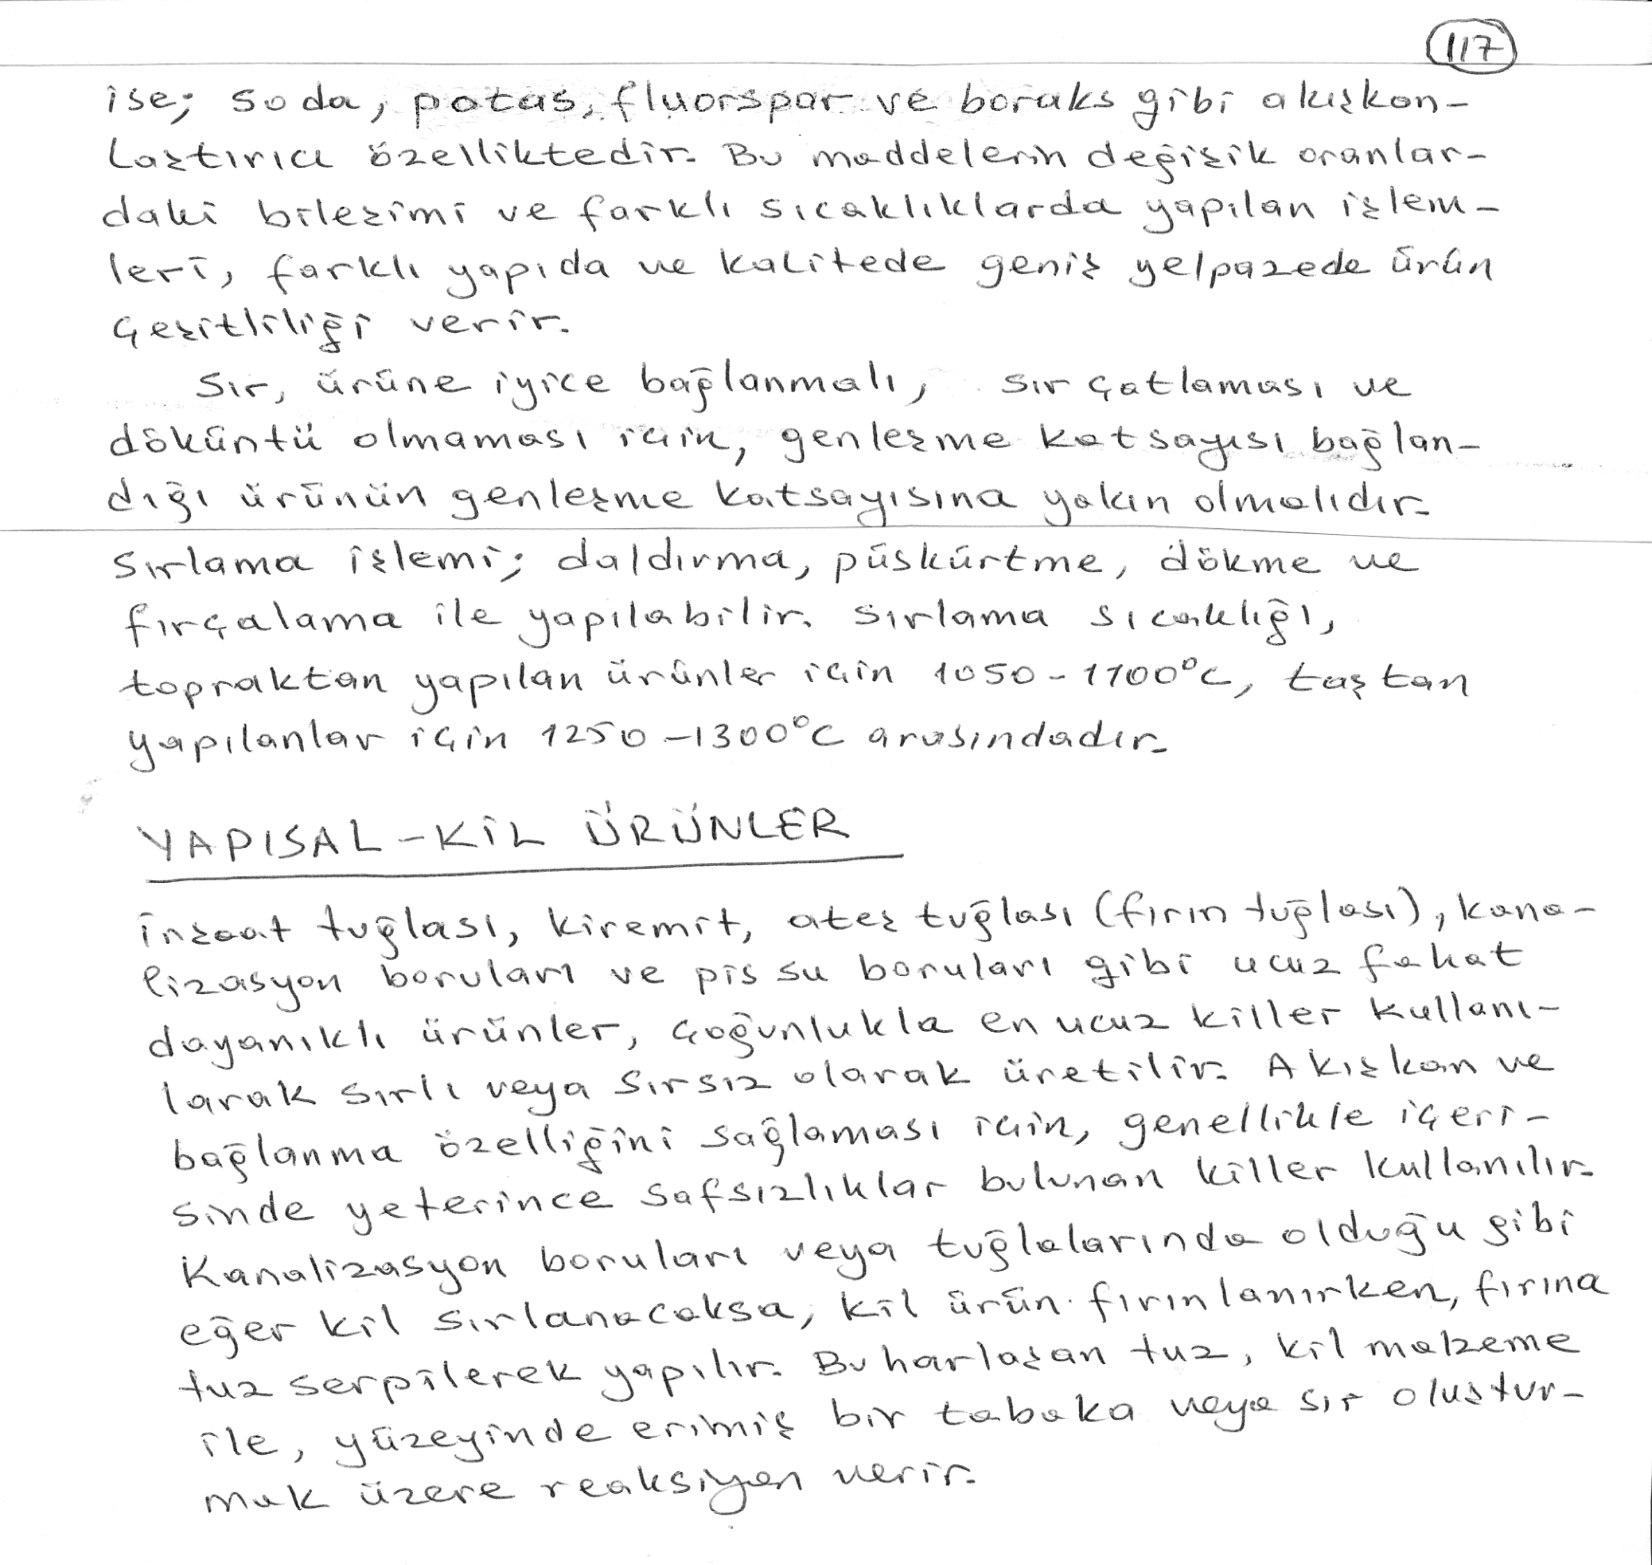 117
ise; soda, potas, fluorspar ve boraks gibi akışkan-
laştırıcı özelliktedir. Bu maddelerin değişik oranlar-
daki bileşimi ve farklı sıcaklıklarda yapılan işlem-
leri, farklı yapıda ve kalitede geniş yelpazede ürün
çeşitliliği verir.
Sır, ürüne iyice bağlanmalı, sır çatlaması ve
döküntü olmaması için, genleşme katsayısı bağlan-
dığı ürünün genleşme katsayısına yakın olmalıdır.
Sırlama işlemi; daldırma, püskürtme, dökme ve
fırçalama ile yapılabilir. Sırlama sıcaklığı,
topraktan yapılan ürünler için 1050-1100°C, taştan
yapılanlar için 1250-1300°C arasındadır.
YAPISAL-KİL ÜRÜNLER
İnşaat tuğlası, kiremit, ateş tuğlası (fırın tuğlası), kana-
lizasyon boruları ve pis su boruları gibi ucuz fakat
dayanıklı ürünler, çoğunlukla en ucuz killer kullanı-
larak sırlı veya sırsız olarak üretilir. Akışkan ve
bağlanma özelliğini sağlaması için, genellikle içeri-
sinde yeterince safsızlıklar bulunan killer kullanılır.
Kanalizasyon boruları veya tuğlalarında olduğu gibi
eğer kil sırlanacaksa, kil ürün fırınlanırken, fırına
tuz serpilerek yapılır. Buharlaşan tuz, kil malzeme
ile, yüzeyinde erimiş bir tabaka veya sır oluştur-
mak üzere reaksiyon verir.